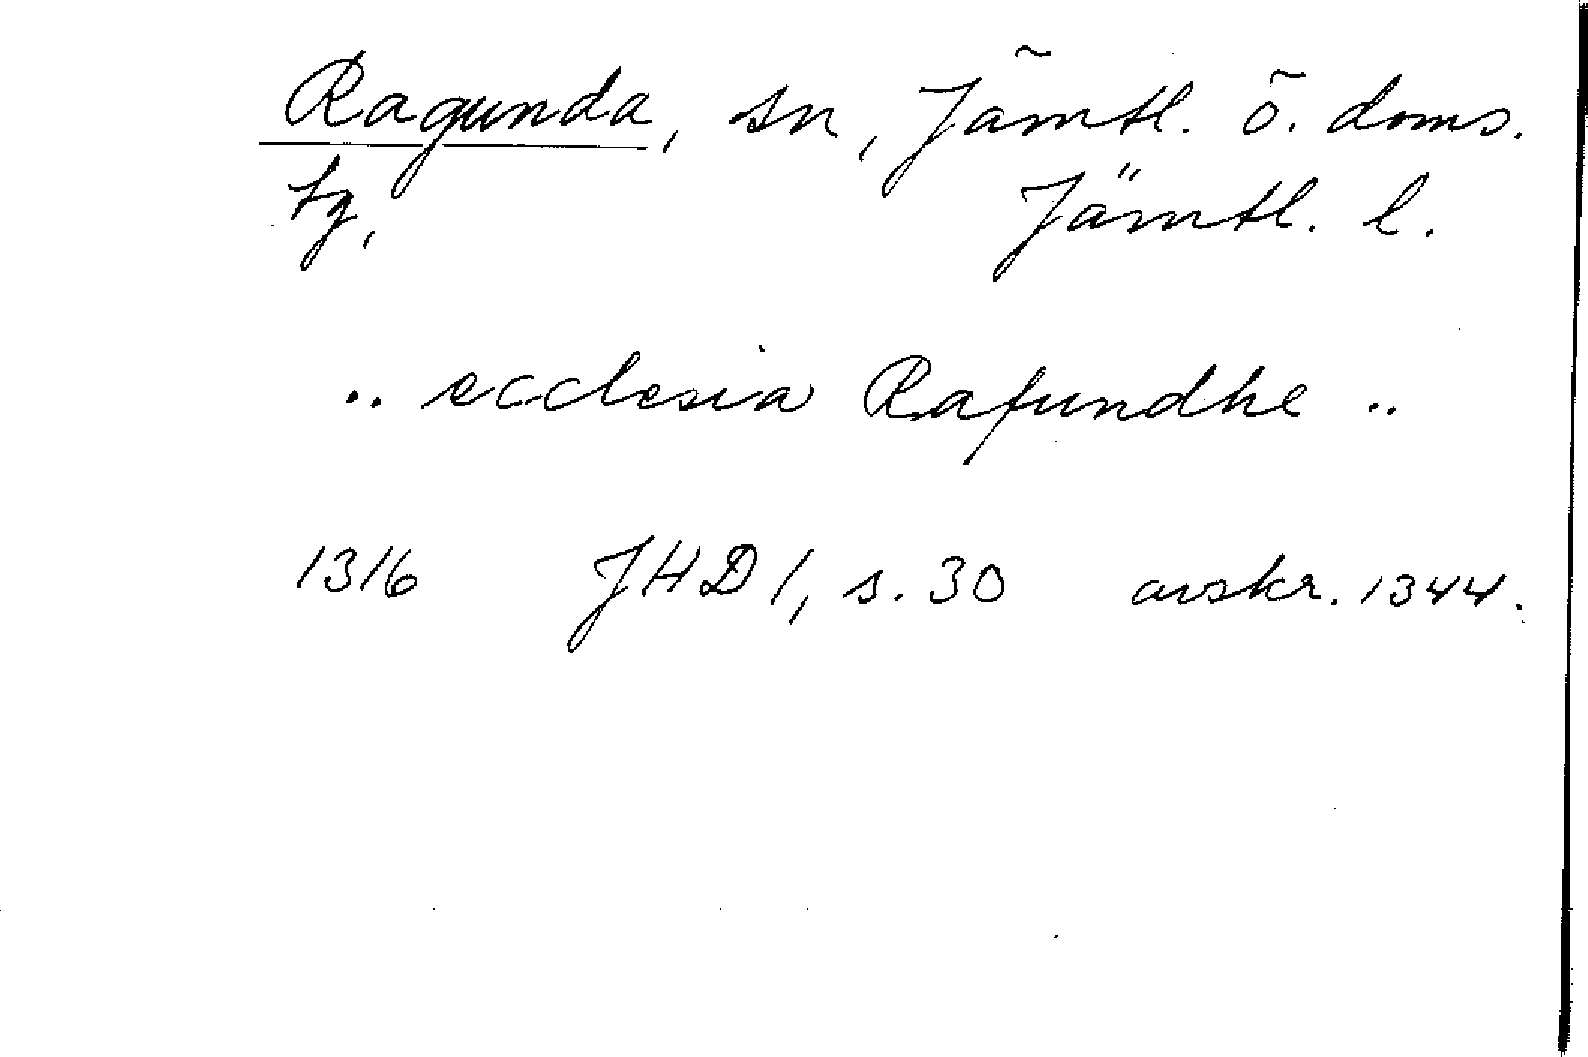 Ragunda, sn, Jämtl. ö. doms.
tg, Jämtl. l.
.. ecclesia Rafundhe ..
1316 JHD 1, s. 30 avskr. 1344.